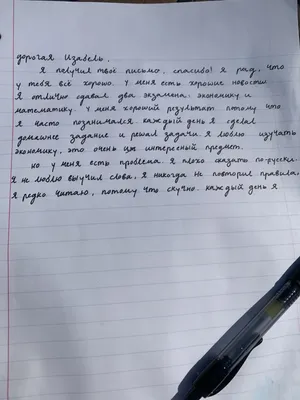 дорогая Изабель,
Я получил твоё письмо, спасибо! Я рад, что
у тебя всё хорошо. У меня есть хорошие новости
Я отлично сдавал два экзамена: экономику и
математику. У меня хороший результат потому что
я часто позанимался. каждый день я сделал
домашнее задание и решал задачи. Я люблю изучать
экономику, это очень интересный предмет.
но у меня есть проблема. Я плохо сказать по-русски.
Я не люблю выучил слова, Я никогда не повторил правила,
Я редко читаю, потому что скучно. каждый день я